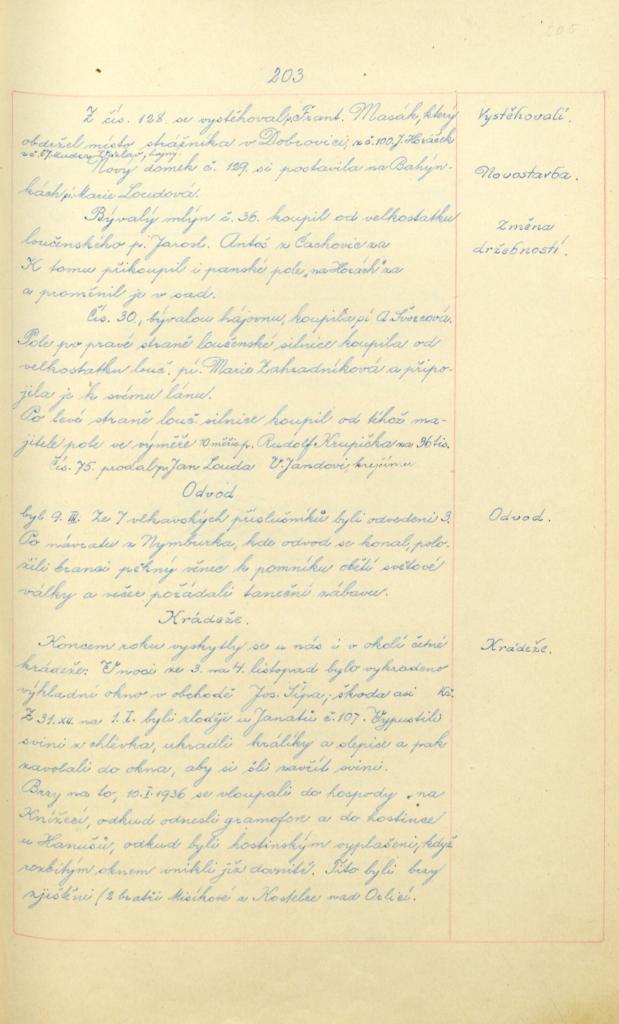 203
Z čís. 128 se vystěhoval p. Frant. Masák, který
Vystěhovalí.
obdržel místo strážníka v Dobrovici, z č. 100 J. Horáček
Nový domek č. 129 si postavila na Bahýn-
Novostavba.
kách pí Marie Loudová.
Bývalý mlýn č. 36. koupil od velkostatku
Změna
loučenského p. Jarosl. Antoš z Čachovic za
držebností.
K tomu přikoupil i panské pole „na Horách" za
a proměnil je v sad.
Čís. 30, bývalou hájovnu, koupila pí A. Švorcová.
Pole po pravé straně loučenské silnice koupila od
velkostatku louč. pí. Marie Zahradníková a připo-
jila je k svému lánu.
Po levé straně louč. silnice koupil od téhož ma-
jitele pole ve výměře 10 měř. p. Rudolf Krupička za 36 tis.
Čís. 75. prodal p. Jan Louda V. Jandovi, krejčímu
Odvod
byl 9. III. Ze 7 vlkavských příslušníků byli odvedeni 3.
Odvod.
Po návratu z Nymburka, kde odvod se konal, polo-
žili branci pěkný věnec k pomníku obětí světové
války a večer pořádali taneční zábavu.
Krádeže.
Koncem roku vyskytly se u nás i v okolí četné
Krádeže.
krádeže. V noci ze 3. na 4. listopad bylo vykradeno
výkladní okno v obchodě Jos. Šípa; škoda asi Kč.
Z 31. XII. na 1. I. byli zloději u Janatů č. 107. Vypustili
svini z chlívka, ukradli králíky a slepice a pak
zavolali do okna, aby si šli zavřít svini.
Brzy na to, 10. I. 1936 se vloupali do hospody „na
Knížecí, odkud odnesli gramofon a do hostince
u Hanušů, odkud byli hostinským vyplašeni, když
rozbitým oknem vnikli již dovnitř. Tito byli brzy
zjištěni (2 bratři Misíkové z Kostelce nad Orlicí.